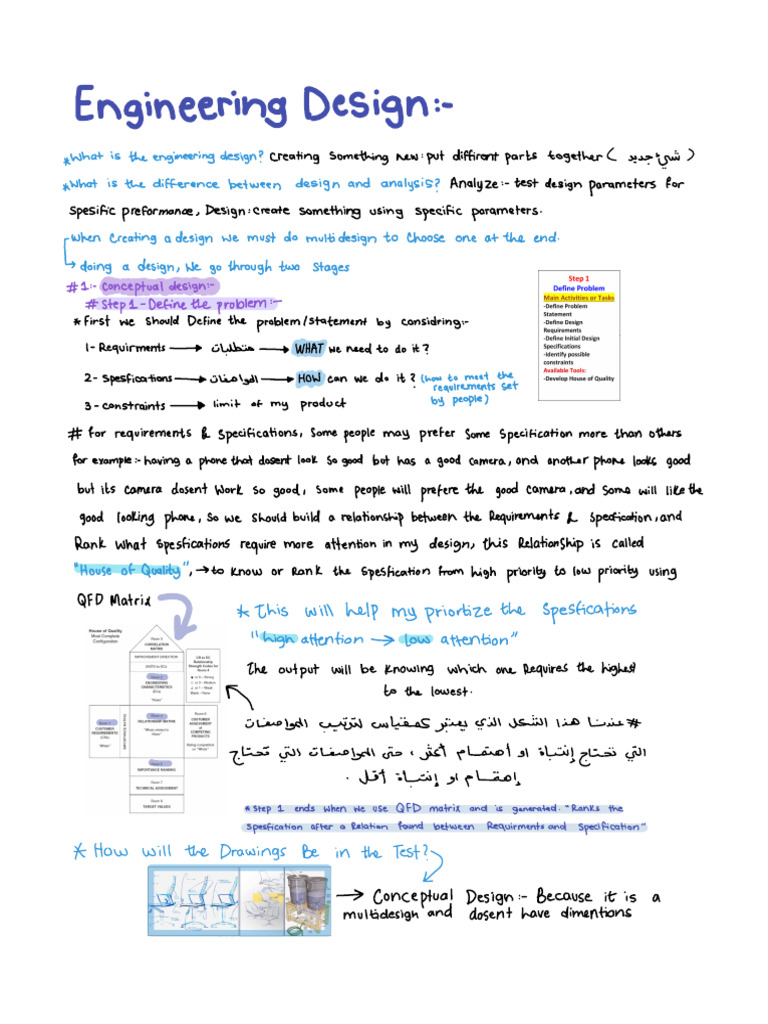 Engineering Design:-
*What is the engineering design? Creating something new: put diffirent parts together ( شيئ جديد )
*What is the difference between design and analysis? Analyze:- test design parameters for
spesific preformance, Design: create something using specific parameters.
when creating a design we must do multidesign to choose one at the end.
doing a design, we go through two stages
#1:- Conceptual design:-
# Step 1 - Define the problem:-
*First we should Define the problem/statement by considring:-
1- Requirments → متطلبات → WHAT we need to do it?
2- Spesfications → المواصفات → HOW can we do it? (how to meet the
requirements set
by people)
3- constraints → limit of my product
Step 1
Define Problem
Main Activities or Tasks
-Define Problem
Statement
-Define Design
Requirements
-Define Initial Design
Specifications
-Identify possible
constraints
Available Tools:
-Develop House of Quality
# for requirements & specifications, some people may prefer some specification more than others
for example:- having a phone that dosent look so good bot has a good camera, and another phone looks good
but its camera dosent work so good, some people will prefere the good camera, and some will like the
good looking phone, so we should build a relationship between the Requirements & Specification, and
Rank what spesfications require more attention in my design, this Relationship is called
"House of Quality", → to know or Rank the spesfication from high priority to low priority using
QFD Matrix
*This will help my priortize the spesfications
"high attention → low attention"
The output will be knowing which one Requires the highest
to the lowest.
House of Quality
Most Complete
Configuration
Room 3
CORRELATION
MATRIX
IMPROVEMENT DIRECTION
UNITS for ECs
Room 2
ENGINEERING
CHARACTERISTICS
(ECs)
"Hows"
CR to EC
Relationship
Strength Codes for
Room 4
Room 1
CUSTOMER
REQUIREMENTS
(CRs)
"Whats"
IMPORTANCE RATING
Room 4
RELATIONSHIP MATRIX
"Whats related to
Hows"
Room 6
CUSTOMER
ASSESSMENT
of
COMPETING
PRODUCTS
Room 5
IMPORTANCE RANKING
Room 7
TECHNICAL ASSESSMENT
Room 8
TARGET VALUES
# عندنا هذا الشكل الذي يعتبر كمقياس لترتيب المواصفات
التي نحتاج إنتباة او أهتمام أكثر ، حتى المواصفات التي تحتاج
إهتمام او إنتباة أقل .
*Step 1 ends when we use QFD matrix and is generated. "Ranks the
spesfication after a Relation found between Requirments and Specification"
*How will the Drawings Be in the Test?
→ Conceptual Design:- Because it is a
multidesign and dosent have dimentions